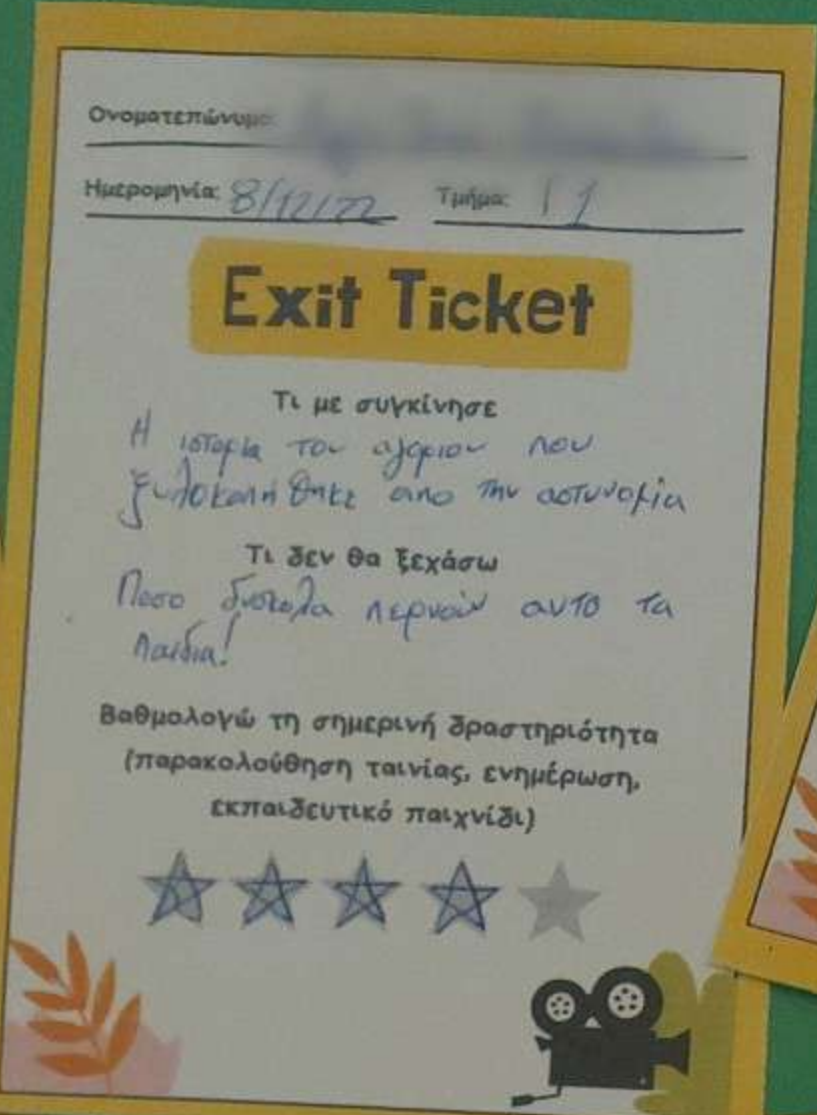 Ονοματεπώνυμο:
Ημερομηνία: 8/12/22 Τμήμα: Γ1
Exit Ticket
Τι με συγκίνησε
Η ιστορία του αγοριου που
ξυλοκοπήθηκε απο την αστυνομία
Τι δεν θα ξεχάσω
Ποσο δυσκολα περνούν αυτα τα
παιδια!
Βαθμολογώ τη σημερινή δραστηριότητα
(παρακολούθηση ταινίας, ενημέρωση,
εκπαιδευτικό παιχνίδι)